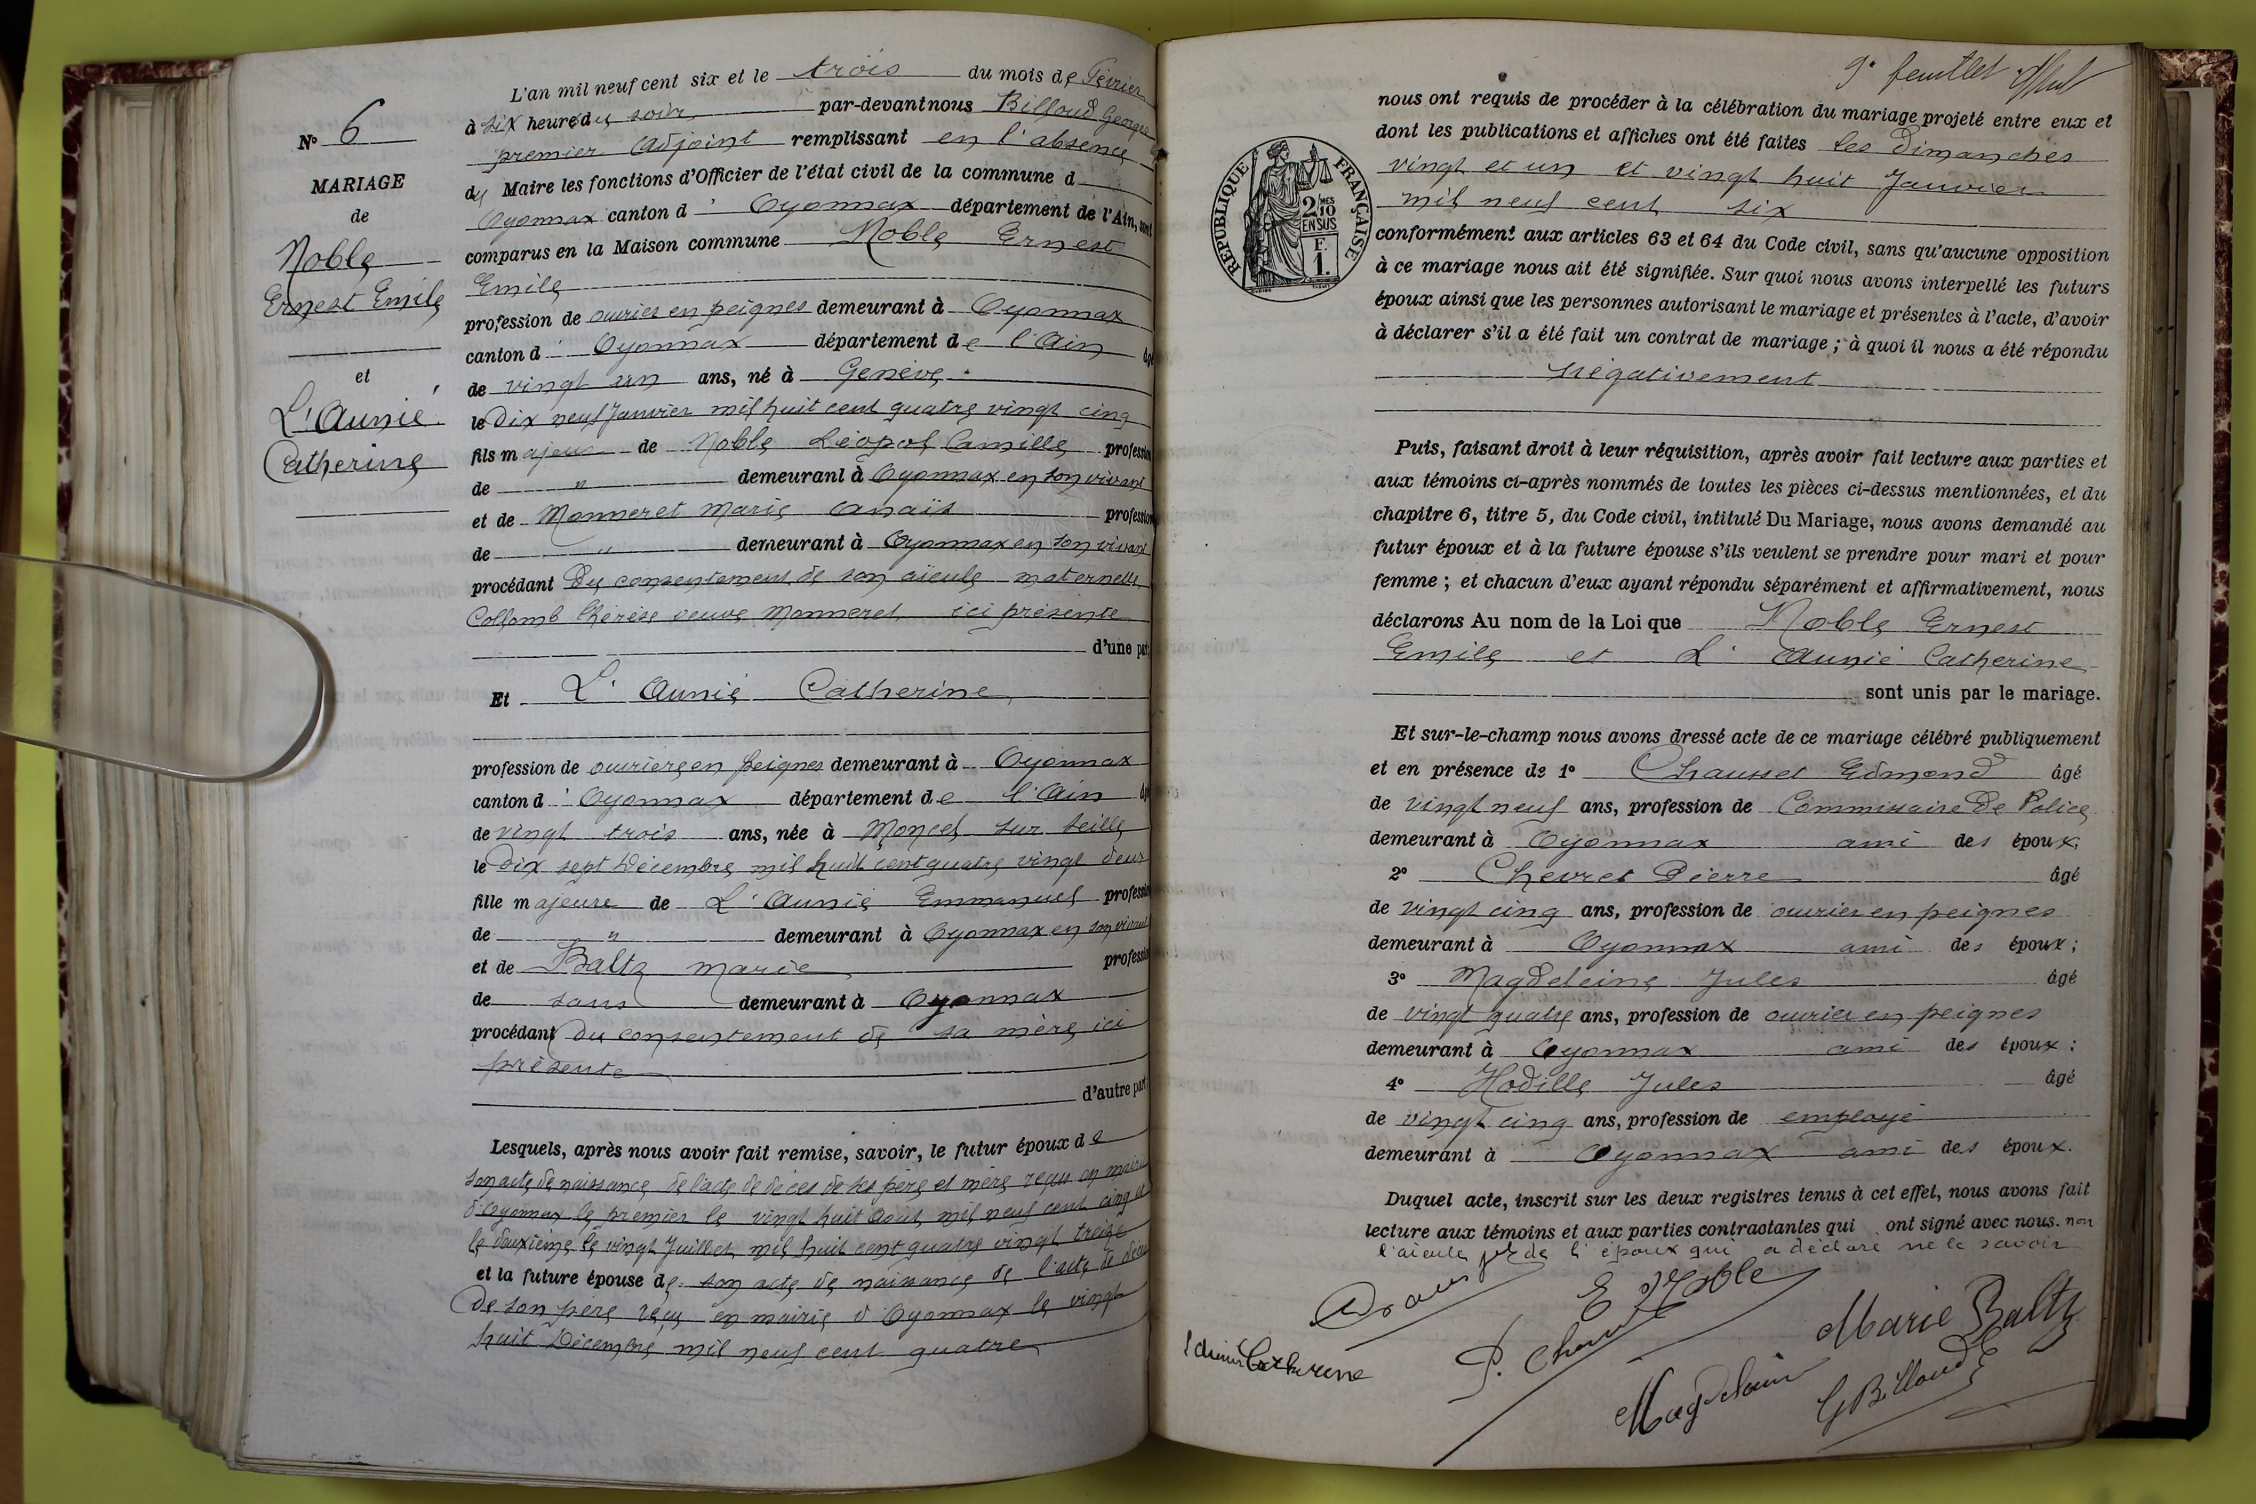 N° 6
MARIAGE
de
Noble
Ernest Emile
et
L'Aunié
Catherine
L'an mil neuf cent six et le trois du mois de Février
à six heures du soir par-devant nous Billoud Georges
premier adjoint remplissant en l'absence
du Maire les fonctions d'Officier de l'état civil de la commune d
Oyonnax canton d' Oyonnax département de l'Ain, sont
comparus en la Maison commune Noble Ernest
Emile
profession de ouvrier en peignes demeurant à Oyonnax
canton d' Oyonnax département de l'Ain âgé
de vingt un ans, né à Genève
le dix neuf Janvier mil huit cent quatre vingt cinq
fils majeur de Noble Léopol Camille profession
de " demeurant à Oyonnax en son vivant
et de Monneret Marie Anaïs profession
de " demeurant à Oyonnax en son vivant
procédant du consentement de son aïeule maternelle
Collomb Thérèse veuve Monneret ici présente
d'une part,
Et L'Aunié Catherine
profession de ouvrière en peignes demeurant à Oyonnax
canton d' Oyonnax département de l'Ain âgé
de vingt trois ans, née à Moncel sur Seille
le dix sept Décembre mil huit cent quatre vingt deux
fille majeure de L'Aunié Emmanuel profession
de " demeurant à Oyonnax en son vivant
et de Baltz Marie profession
de sans demeurant à Oyonnax
procédant du consentement de sa mère ici
présente
d'autre part
Lesquels, après nous avoir fait remise, savoir, le futur époux de
son acte de naissance de l'acte de décès de ses père et mère reçus en mairie
d'Oyonnax le premier le vingt huit Août mil neuf cent cinq et
le deuxième le vingt Juillet mil huit cent quatre vingt treize
et la future épouse de son acte de naissance de l'acte de décès
de son père reçu en mairie d'Oyonnax le vingt
huit Décembre mil neuf cent quatre
9e feuillet
REPUBLIQUE FRANÇAISE
2/10 MES
EN SUS
F.
1.
nous ont requis de procéder à la célébration du mariage projeté entre eux et
dont les publications et affiches ont été faites les Dimanches
vingt et un et vingt huit Janvier
mil neuf cent six
conformément aux articles 63 et 64 du Code civil, sans qu'aucune opposition
à ce mariage nous ait été signifiée. Sur quoi nous avons interpellé les futurs
époux ainsi que les personnes autorisant le mariage et présentes à l'acte, d'avoir
à déclarer s'il a été fait un contrat de mariage ; à quoi il nous a été répondu
négativement
Puis, faisant droit à leur réquisition, après avoir fait lecture aux parties et
aux témoins ci-après nommés de toutes les pièces ci-dessus mentionnées, et du
chapitre 6, titre 5, du Code civil, intitulé Du Mariage, nous avons demandé au
futur époux et à la future épouse s'ils veulent se prendre pour mari et pour
femme ; et chacun d'eux ayant répondu séparément et affirmativement, nous
déclarons Au nom de la Loi que Noble Ernest
Emile et L'Aunié Catherine
sont unis par le mariage.
Et sur-le-champ nous avons dressé acte de ce mariage célébré publiquement
et en présence de 1° Chausset Edmond âgé
de vingt neuf ans, profession de Commissaire de Police
demeurant à Oyonnax ami des époux;
2° Chevret Pierre âgé
de vingt cinq ans, profession de ouvrier en peignes
demeurant à Oyonnax ami des époux ;
3° Magdeleine Jules âgé
de vingt quatre ans, profession de ouvrier en peignes
demeurant à Oyonnax ami des époux ;
4° Hodille Jules âgé
de vingt cinq ans, profession de employé
demeurant à Oyonnax ami des époux.
Duquel acte, inscrit sur les deux registres tenus à cet effet, nous avons fait
lecture aux témoins et aux parties contractantes qui ont signé avec nous. non
l'aïeule de l'époux qui a déclaré ne le savoir
E Noble
Marie Baltz
Catherine
G Billoud